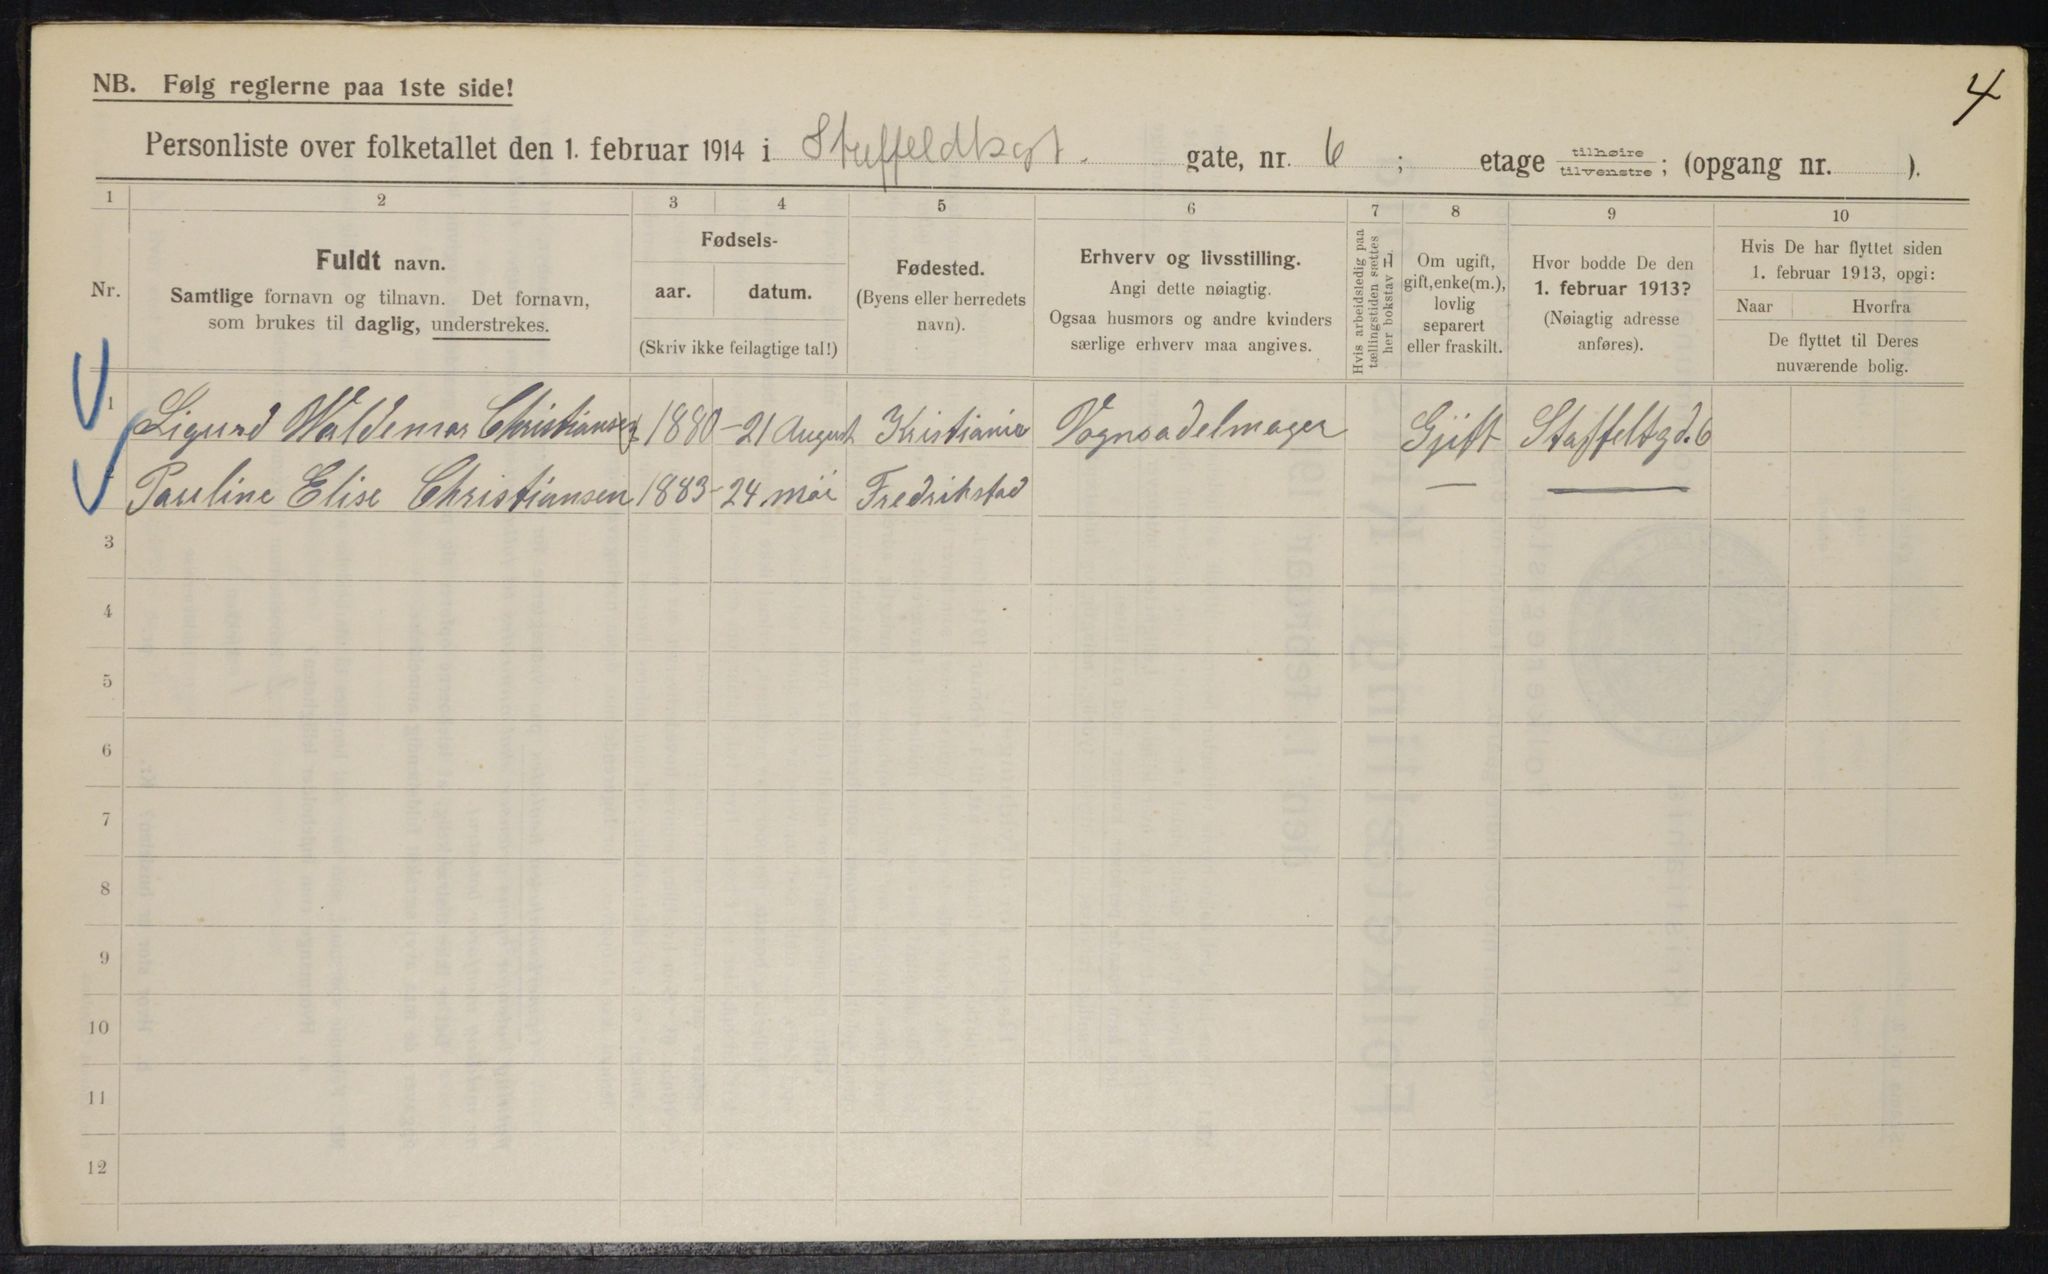 NB. Følg reglerne paa 1ste side!
4
Personliste over folketallet den 1. februar 1914 i Steffeldtsgt. gate, nr. 6 ; etage tilhøire tilvenstre ; (opgang nr. ).
1 2 3 4 5 6 7 8 9 10
Nr.
Fuldt navn.
Samtlige fornavn og tilnavn. Det fornavn,
som brukes til daglig, understrekes.
Fødsels-
aar. datum.
(Skriv ikke feilagtige tal!)
Fødested.
(Byens eller herredets
navn).
Erhverv og livsstilling.
Angi dette nøiagtig.
Ogsaa husmors og andre kvinders
særlige erhverv maa angives.
Hvis arbeidsledig paa
tællingstiden sættes
her bokstav L
Om ugift,
gift, enke(m.),
lovlig
separert
eller fraskilt.
Hvor bodde De den
1. februar 1913?
(Nøiagtig adresse
anføres).
Hvis De har flyttet siden
1. februar 1913, opgi:
Naar Hvorfra
De flyttet til Deres
nuværende bolig.
1 Sigurd Waldemar Christiansen 1880 - 21 August Kristiania Vognsadelmager Gift Staffeltgd. 6
Pauline Elise Christiansen 1883 - 24 mai Fredrikstad — —
3
4
5
6
7
8
9
10
11
12